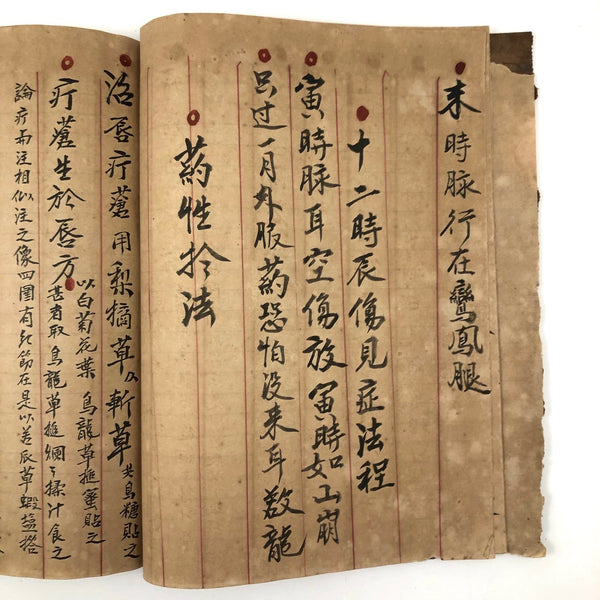 未時脉行在鸞鳳腿
十二時辰傷見症法程
寅時脉耳空傷放寅時如山崩
只过一月外服药恐怕没来耳數龍
葯性拎法
治唇疔蒼用梨摘草以斬草共烏糖貼之
以白菊花葉烏龍草搥蜜貼之
疔蒼生於唇方甚者取烏龍草搥爛々揉汁食之
論疔而注相似注之像四圍有
節在是以羊辰草蝦盐